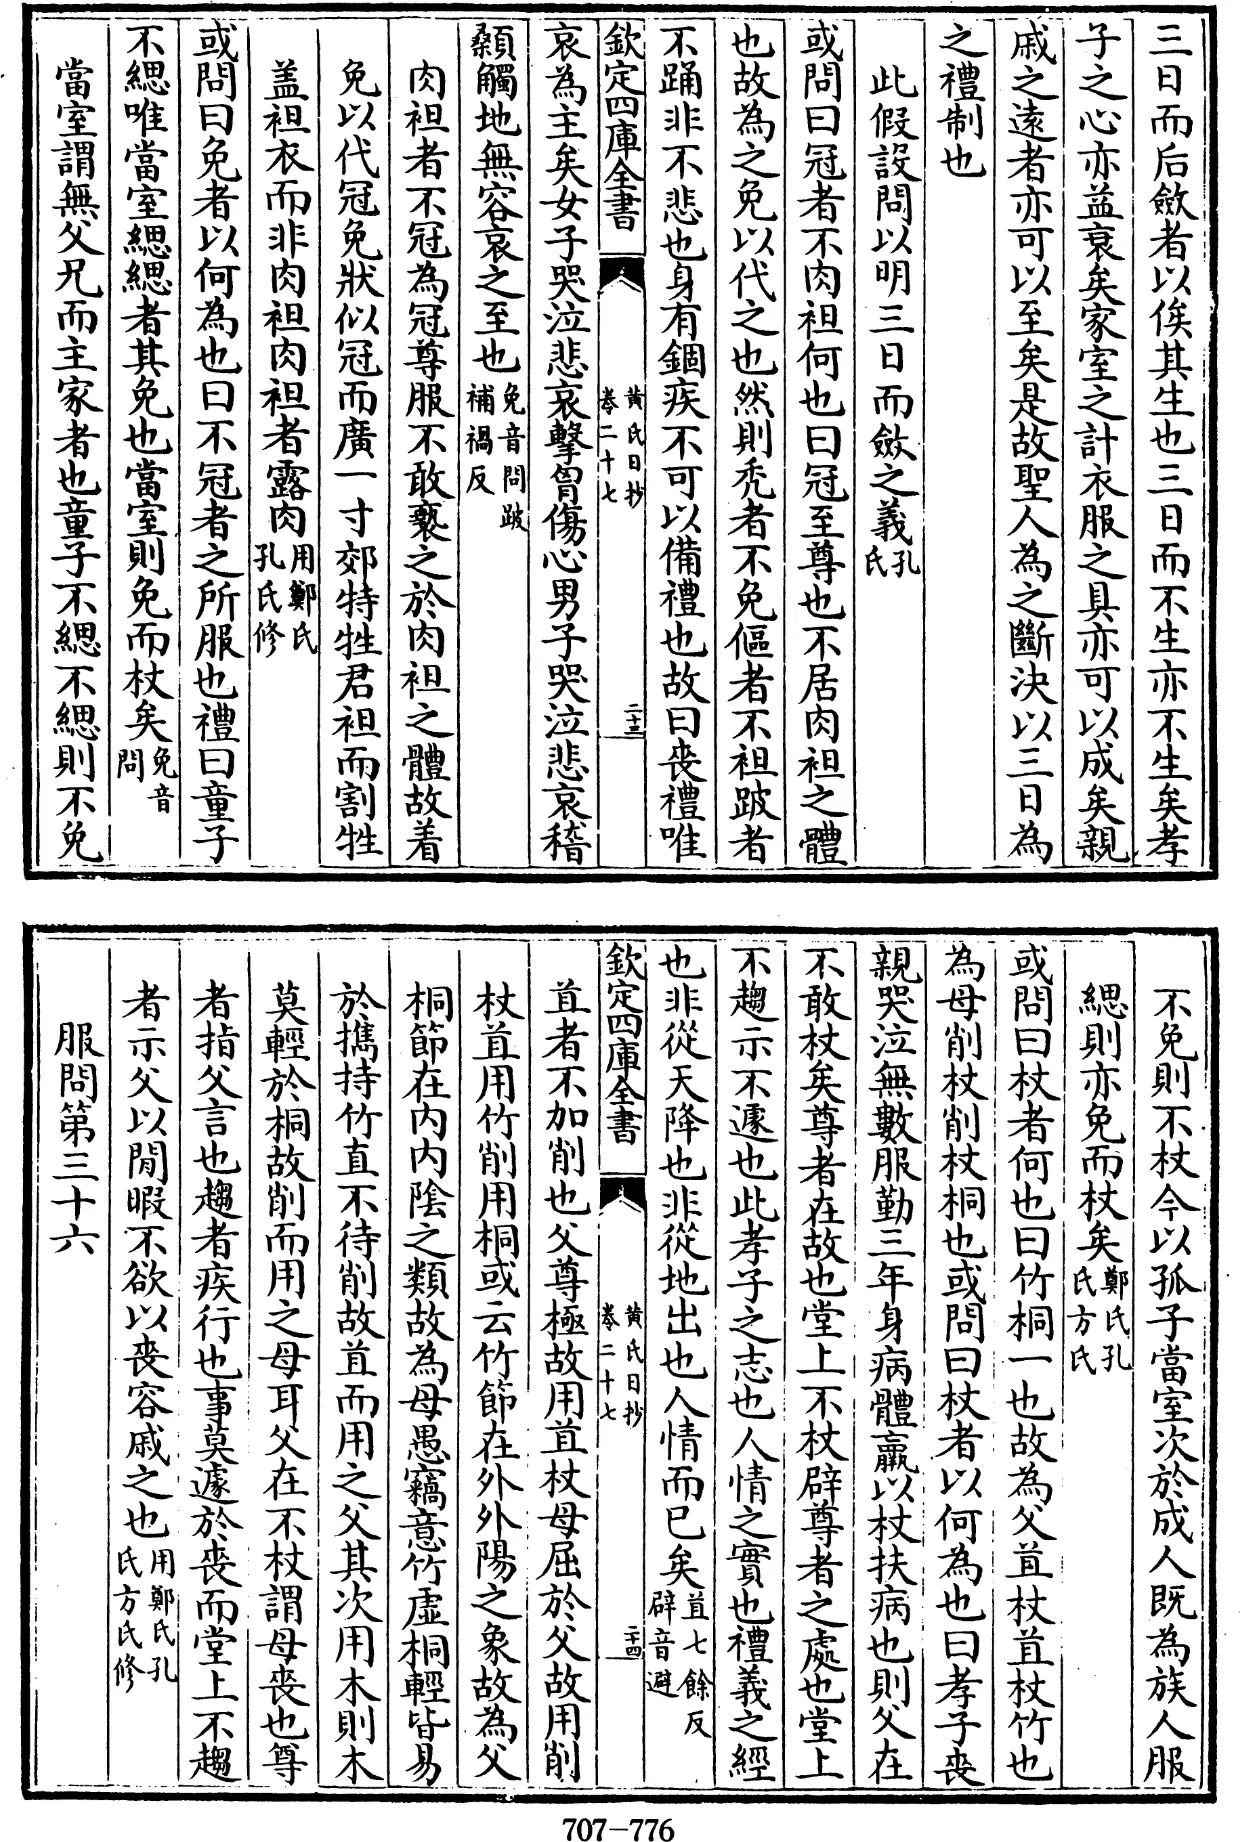 三日而后斂者以俟其生也三日而不生亦不生矣孝
子之心亦益衰矣家室之計衣服之具亦可以成矣親
戚之遠者亦可以至矣是故聖人為之斷決以三日為
之禮制也
此假設問以明三日而斂之義孔氏
或問曰冠者不肉袒何也曰冠至尊也不居肉袒之體
也故為之免以代之也然則秃者不免傴者不袒跛者
不踊非不悲也身有錮疾不可以備禮也故曰喪禮唯
欽定四庫全書 黄氏日抄 卷二十七 二十三
哀為主矣女子哭泣悲哀擊胷傷心男子哭泣悲哀稽
顙觸地無容哀之至也免音問跛補禍反
肉袒者不冠為冠尊服不敢褻之於肉袒之體故着
免以代冠免狀似冠而廣一寸郊特牲君袒而割牲
盖袒衣而非肉袒肉袒者露肉用鄭氏孔氏修
或問曰免者以何為也曰不冠者之所服也禮曰童子
不緦唯當室緦緦者其免也當室則免而杖矣免音問
當室謂無父兄而主家者也童子不緦不緦則不免
不免則不杖今以孤子當室次於成人既為族人服
緦則亦免而杖矣鄭氏孔氏方氏
或問曰杖者何也曰竹桐一也故為父苴杖苴杖竹也
為母削杖削杖桐也或問曰杖者以何為也曰孝子喪
親哭泣無數服勤三年身病體羸以杖扶病也則父在
不敢杖矣尊者在故也堂上不杖辟尊者之處也堂上
不趨示不遽也此孝子之志也人情之實也禮義之經
也非從天降也非從地出也人情而已矣苴七餘反辟音避
欽定四庫全書 黄氏日抄 卷二十七 二十四
苴者不加削也父尊極故用苴杖母屈於父故用削
杖苴用竹削用桐或云竹節在外外陽之象故為父
桐節在内内陰之類故為母愚竊意竹虛桐輕皆易
於携持竹直不待削故苴而用之父其次用木則木
莫輕於桐故削而用之母耳父在不杖謂母喪也尊
者指父言也趨者疾行也事莫遽於喪而堂上不趨
者示父以閒暇不欲以喪容戚之也用鄭氏孔氏方氏修
服問第三十六
707-776